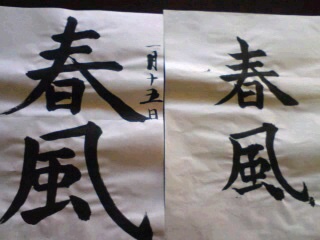 春風
一月十五日
春風